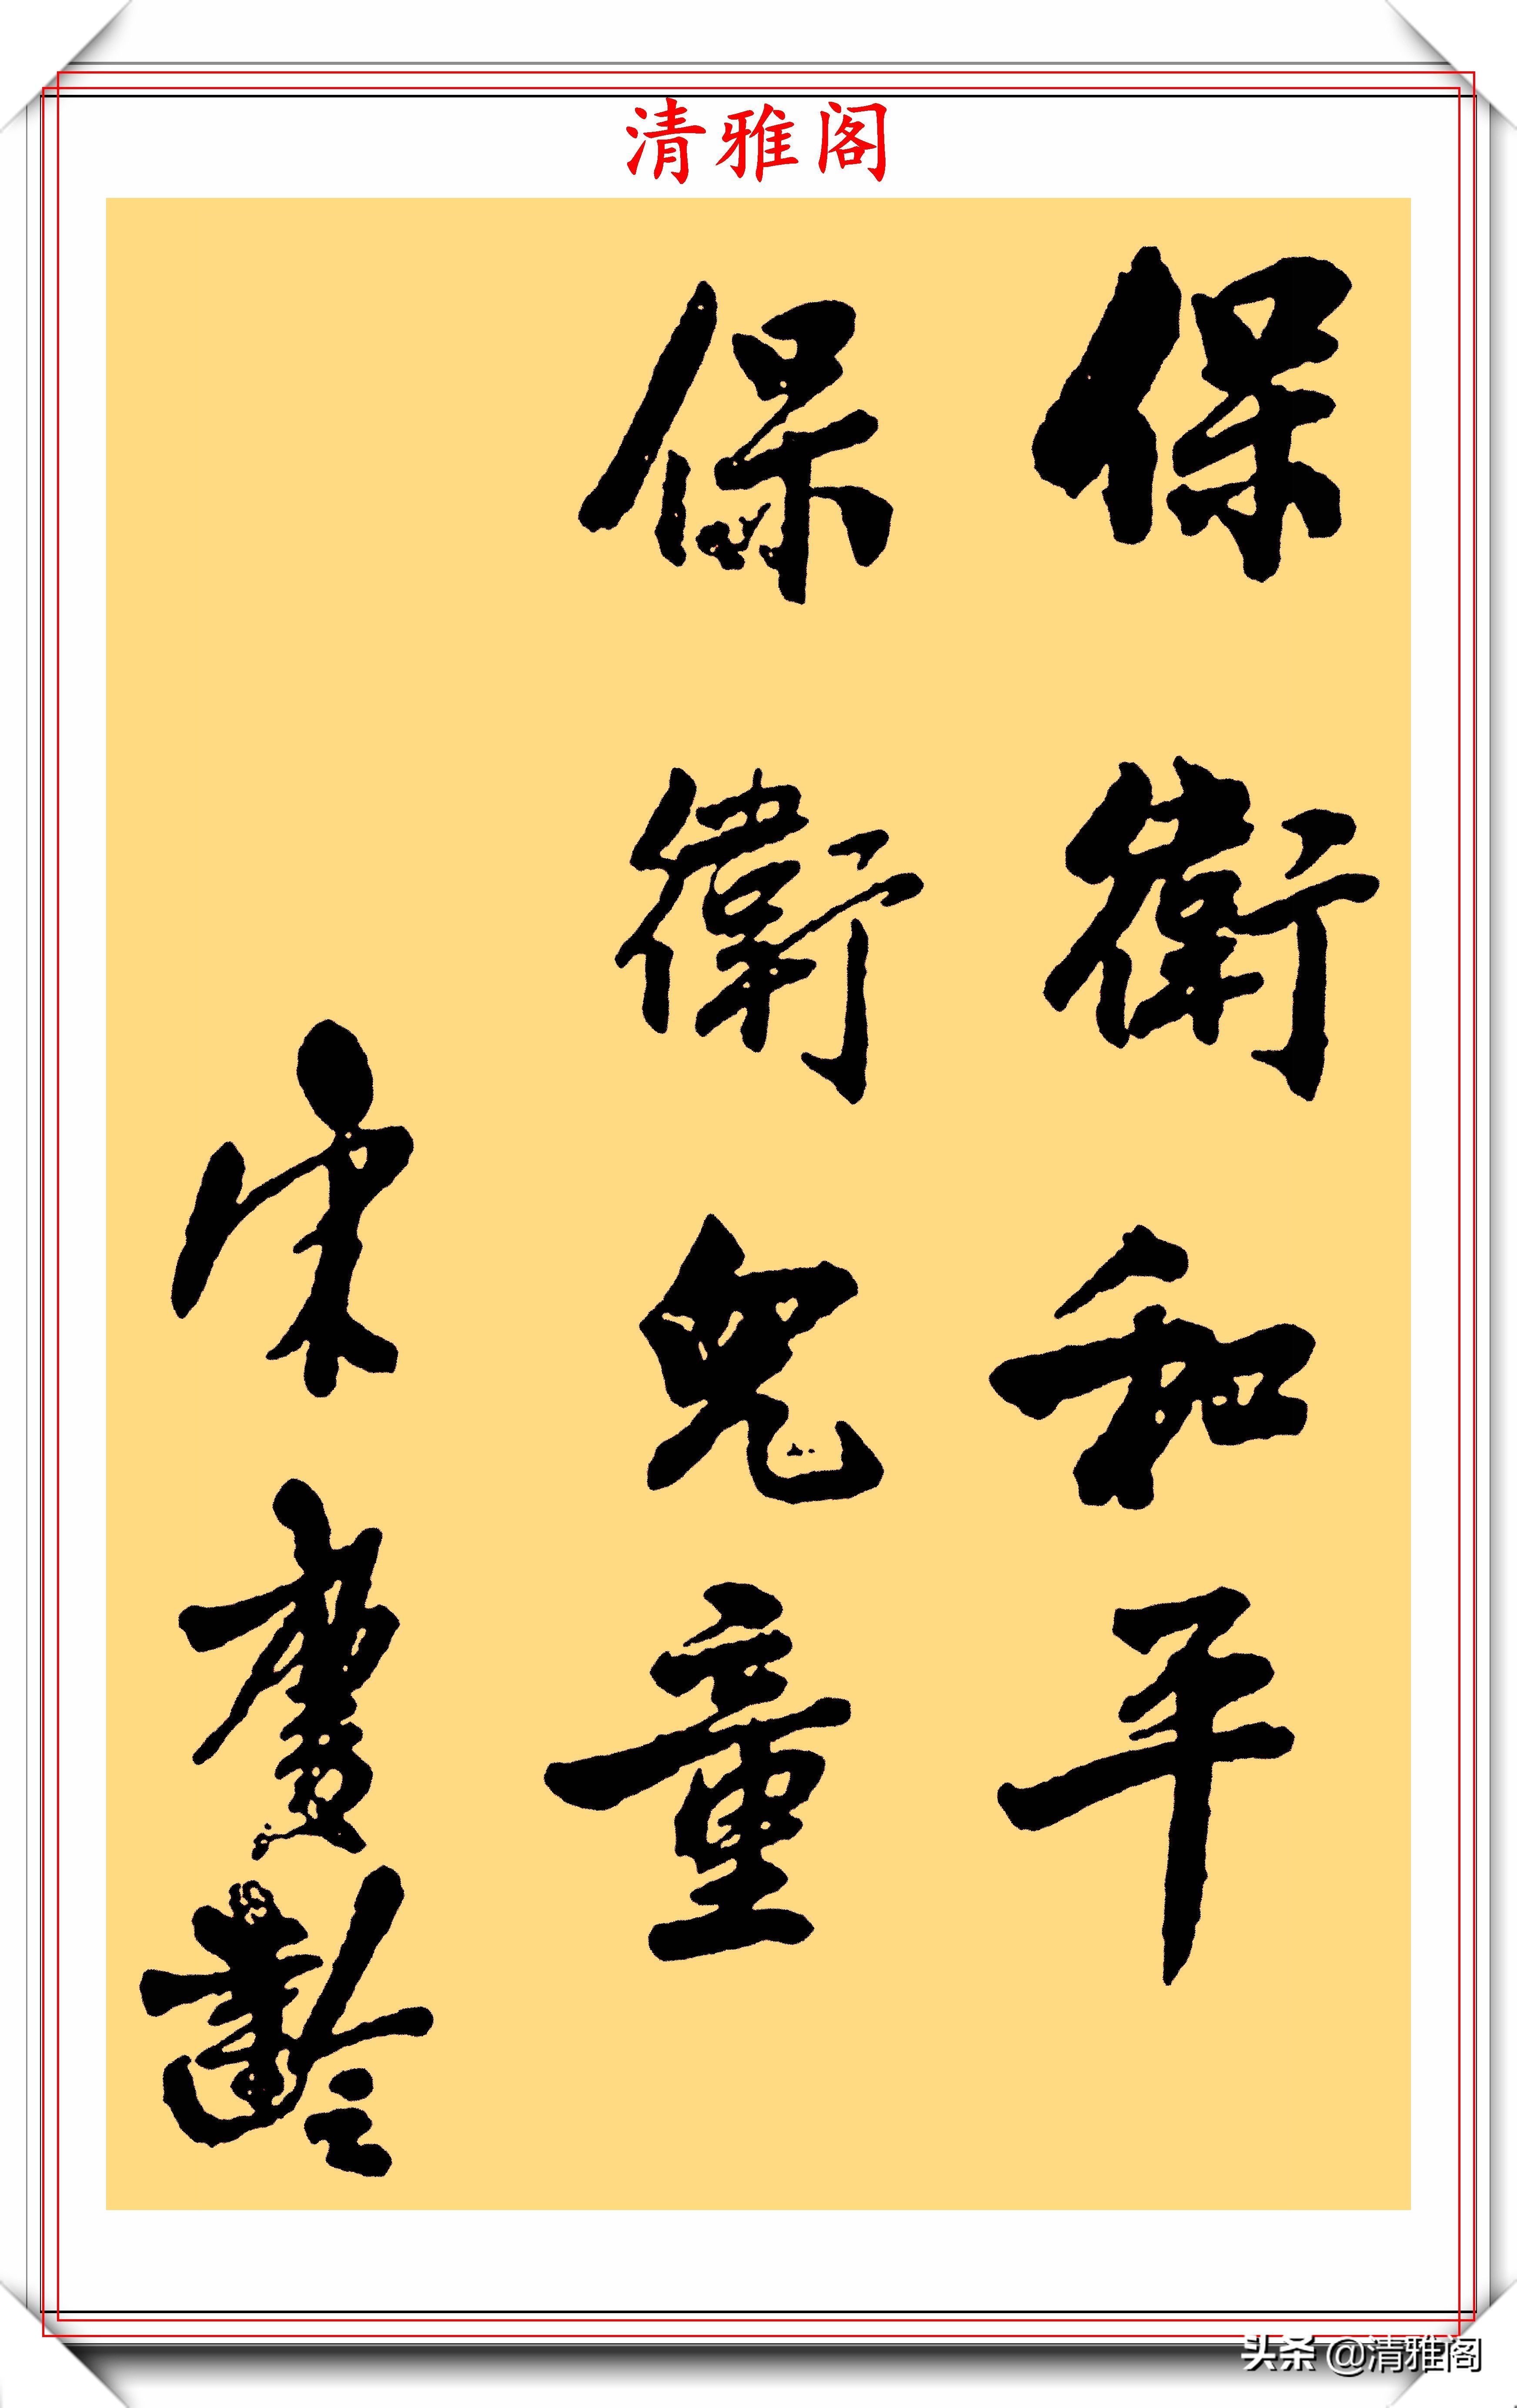 清雅阁
保衛和平
保衛兒童
宋慶齡
头条 @清雅阁